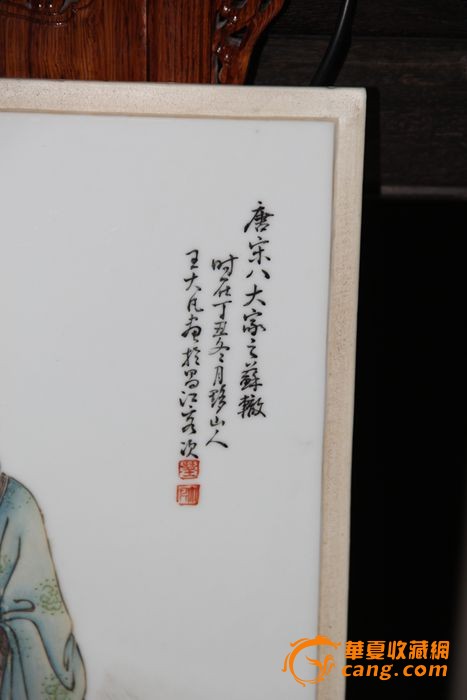 唐宋八大家之蘇轍
时在丁丑冬月黟山人
王大凡画於昌江客次
華夏收藏網
cang.com